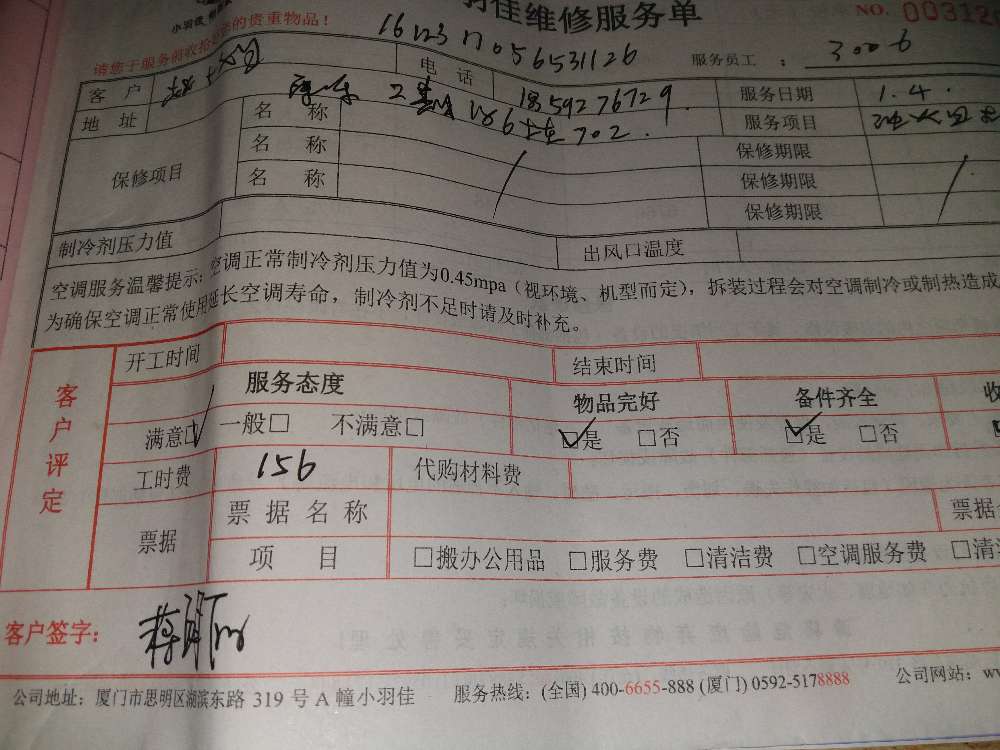 羽佳维修服务单
NO. 00312
小羽佳
请您于服务前收拾好您的贵重物品!
16123 17056531126
服务员工: 3006
客户 电话 18592276729 服务日期 1.4.
地址 702. 服务项目
保修项目 名称 保修期限
名称 保修期限
名称 保修期限
制冷剂压力值 出风口温度
空调服务温馨提示:空调正常制冷剂压力值为0.45mpa(视环境、机型而定),拆装过程会对空调制冷或制热造成
为确保空调正常使用延长空调寿命,制冷剂不足时请及时补充。
客户评定
开工时间 结束时间
服务态度 物品完好 备件齐全 收
满意☑ 一般□ 不满意□ ☑是 □否 ☑是 □否
工时费 156 代购材料费
票据 票据名称 票据
项目 □搬办公用品 □服务费 □清洁费 □空调服务费 □清
客户签字:
公司地址:厦门市思明区湖滨东路 319 号 A 幢小羽佳 服务热线:(全国) 400-6655-888 (厦门) 0592-5178888 公司网站:w